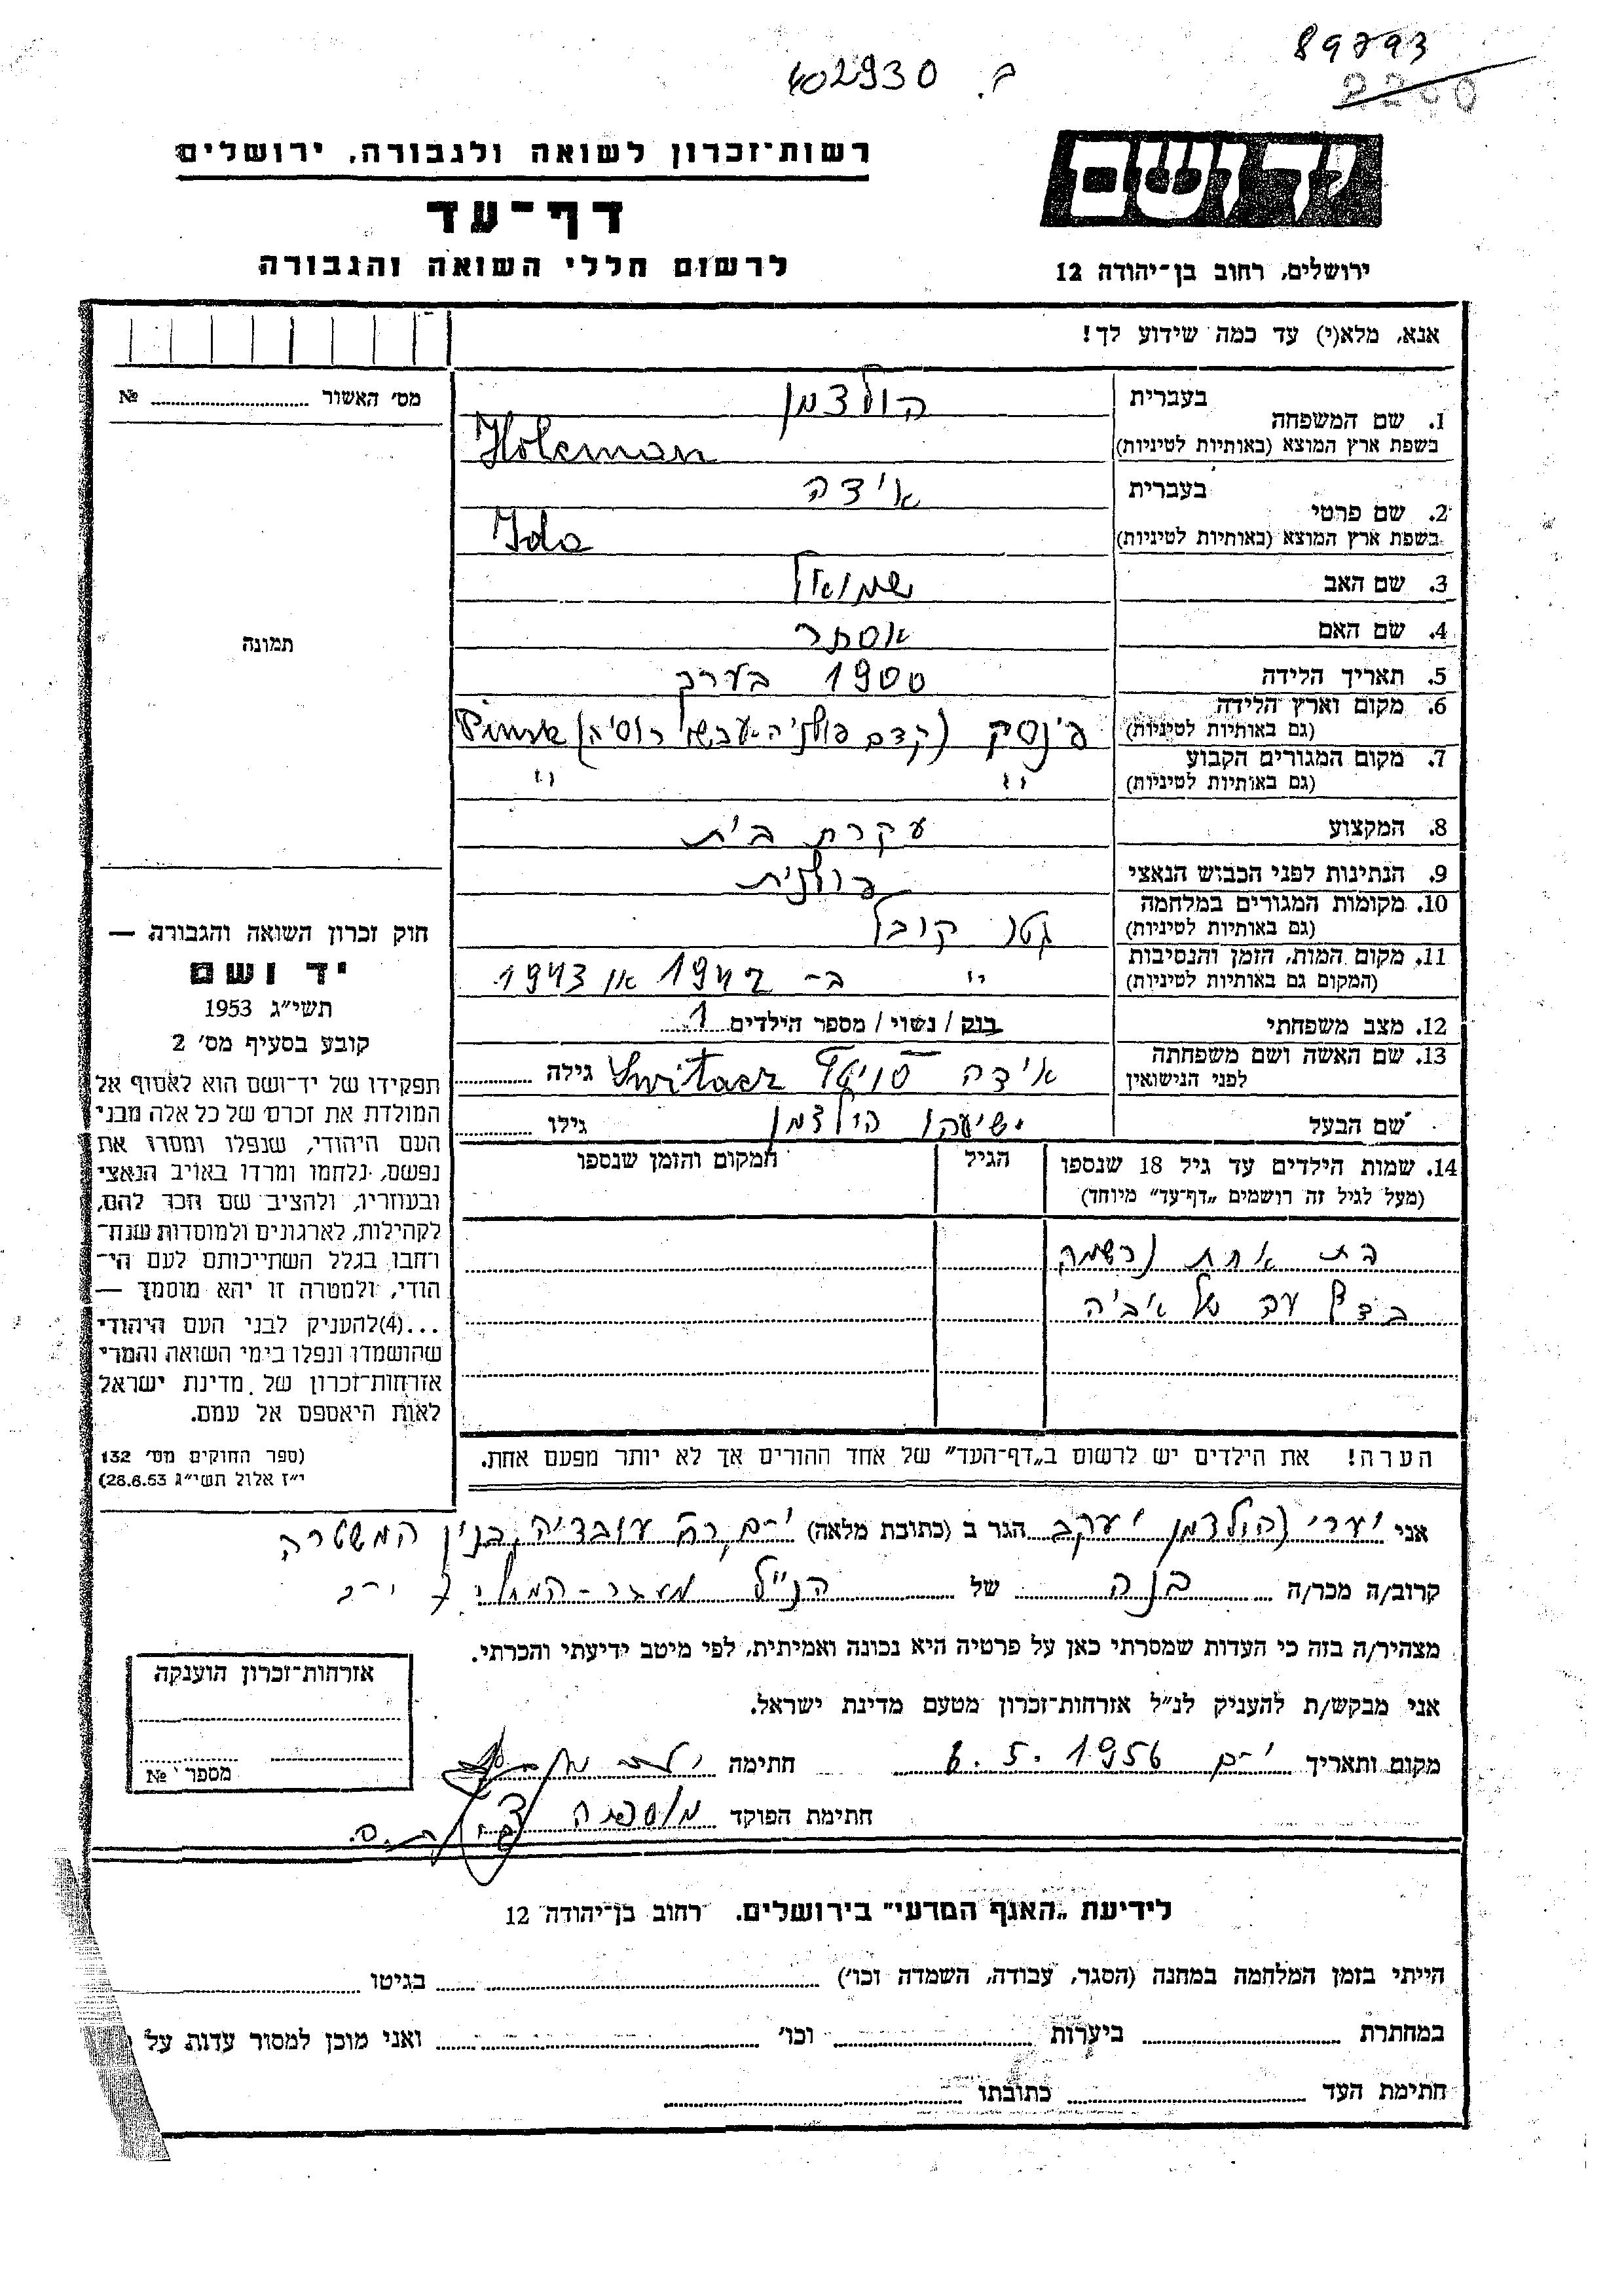 89793
2200
402930 ב.
רשות־זכרון לשואה ולגבורה, ירושלים
ידושם
דף־עד
לרשום חללי השואה והגבורה
ירושלים, רחוב בן־יהודה 12
אנא, מלא(י) עד כמה שידוע לך!
מס׳ האשור № 
1. שם המשפחה בעברית הולצמן
בשפת ארץ המוצא (באותיות לטיניות) Holcman
2. שם פרטי בעברית אידה
בשפת ארץ המוצא (באותיות לטיניות) Ida
3. שם האב שמואל
4. שם האם אסתר
תמונה
5. תאריך הלידה 1900 בערך
6. מקום וארץ הלידה (גם באותיות לטיניות) פינסק (קדם פולניה עכשו רוסיה) Pinsk
7. מקום המגורים הקבוע (גם באותיות לטיניות) " "
8. המקצוע עקרת בית
9. הנתינות לפני הכבוש הנאצי פולנית
10. מקומות המגורים במלחמה (גם באותיות לטיניות) גטו קובל
11. מקום המות, הזמן והנסיבות (המקום גם באותיות לטיניות) " ב- 1942 או 1943
12. מצב משפחתי רווק / נשוי / מספר הילדים 1
13. שם האשה ושם משפחתה לפני הנישואין אידה Switacz גילה
שם הבעל ישעיהו הולצמן גילו
14. שמות הילדים עד גיל 18 שנספו הגיל המקום והזמן שנספו
(מעל לגיל זה רושמים „דף־עד" מיוחד)
בת אחת נרשמה
בדף עד של אביה
חוק זכרון השואה והגבורה —
יד ושם
תשי״ג 1953
קובע בסעיף מס׳ 2
תפקידו של יד־ושם הוא לאסוף אל
המולדת את זכרם של כל אלה מבני
העם היהודי, שנפלו ומסרו את
נפשם, נלחמו ומרדו באויב הנאצי
ובעוזריו, ולהציב שם וזכר להם,
לקהילות, לארגונים ולמוסדות שנח־
רחבו בגלל השתייכותם לעם הי־
הודי, ולמטרה זו יהא מוסמך —
...(4)להעניק לבני העם היהודי
שהושמדו ונפלו בימי השואה והמרי
אזרחות־זכרון של מדינת ישראל
לאות היאספם אל עמם.
(ספר החוקים מס׳ 132
י״ז אלול תשי״ג 28.8.53)
הערה! את הילדים יש לרשום ב„דף־העד" של אחד ההורים אך לא יותר מפעם אחת.
אני יערי (הולצמן יעקב הגר ב (כתובת מלאה) י-ם רח׳ עובדיה, בנין המשטרה
קרוב/ה מכר/ה בנה של הנ״ל
מצהיר/ה בזה כי העדות שמסרתי כאן על פרטיה היא נכונה ואמיתית, לפי מיטב ידיעתי והכרתי.
אני מבקש/ת להעניק לנ״ל אזרחות־זכרון מטעם מדינת ישראל.
מקום ותאריך י-ם 6.5.1956 חתימה
חתימת הפוקד
אזרחות־זכרון הוענקה
מספר №
לידיעת „האגף המדעי" בירושלים. רחוב בן־יהודה 12
הייתי בזמן המלחמה במחנה (הסגר, עבודה, השמדה וכו׳) בגיטו
במחתרת ביערות וכו׳ ואני מוכן למסור עדות על
חתימת העד כתובתו